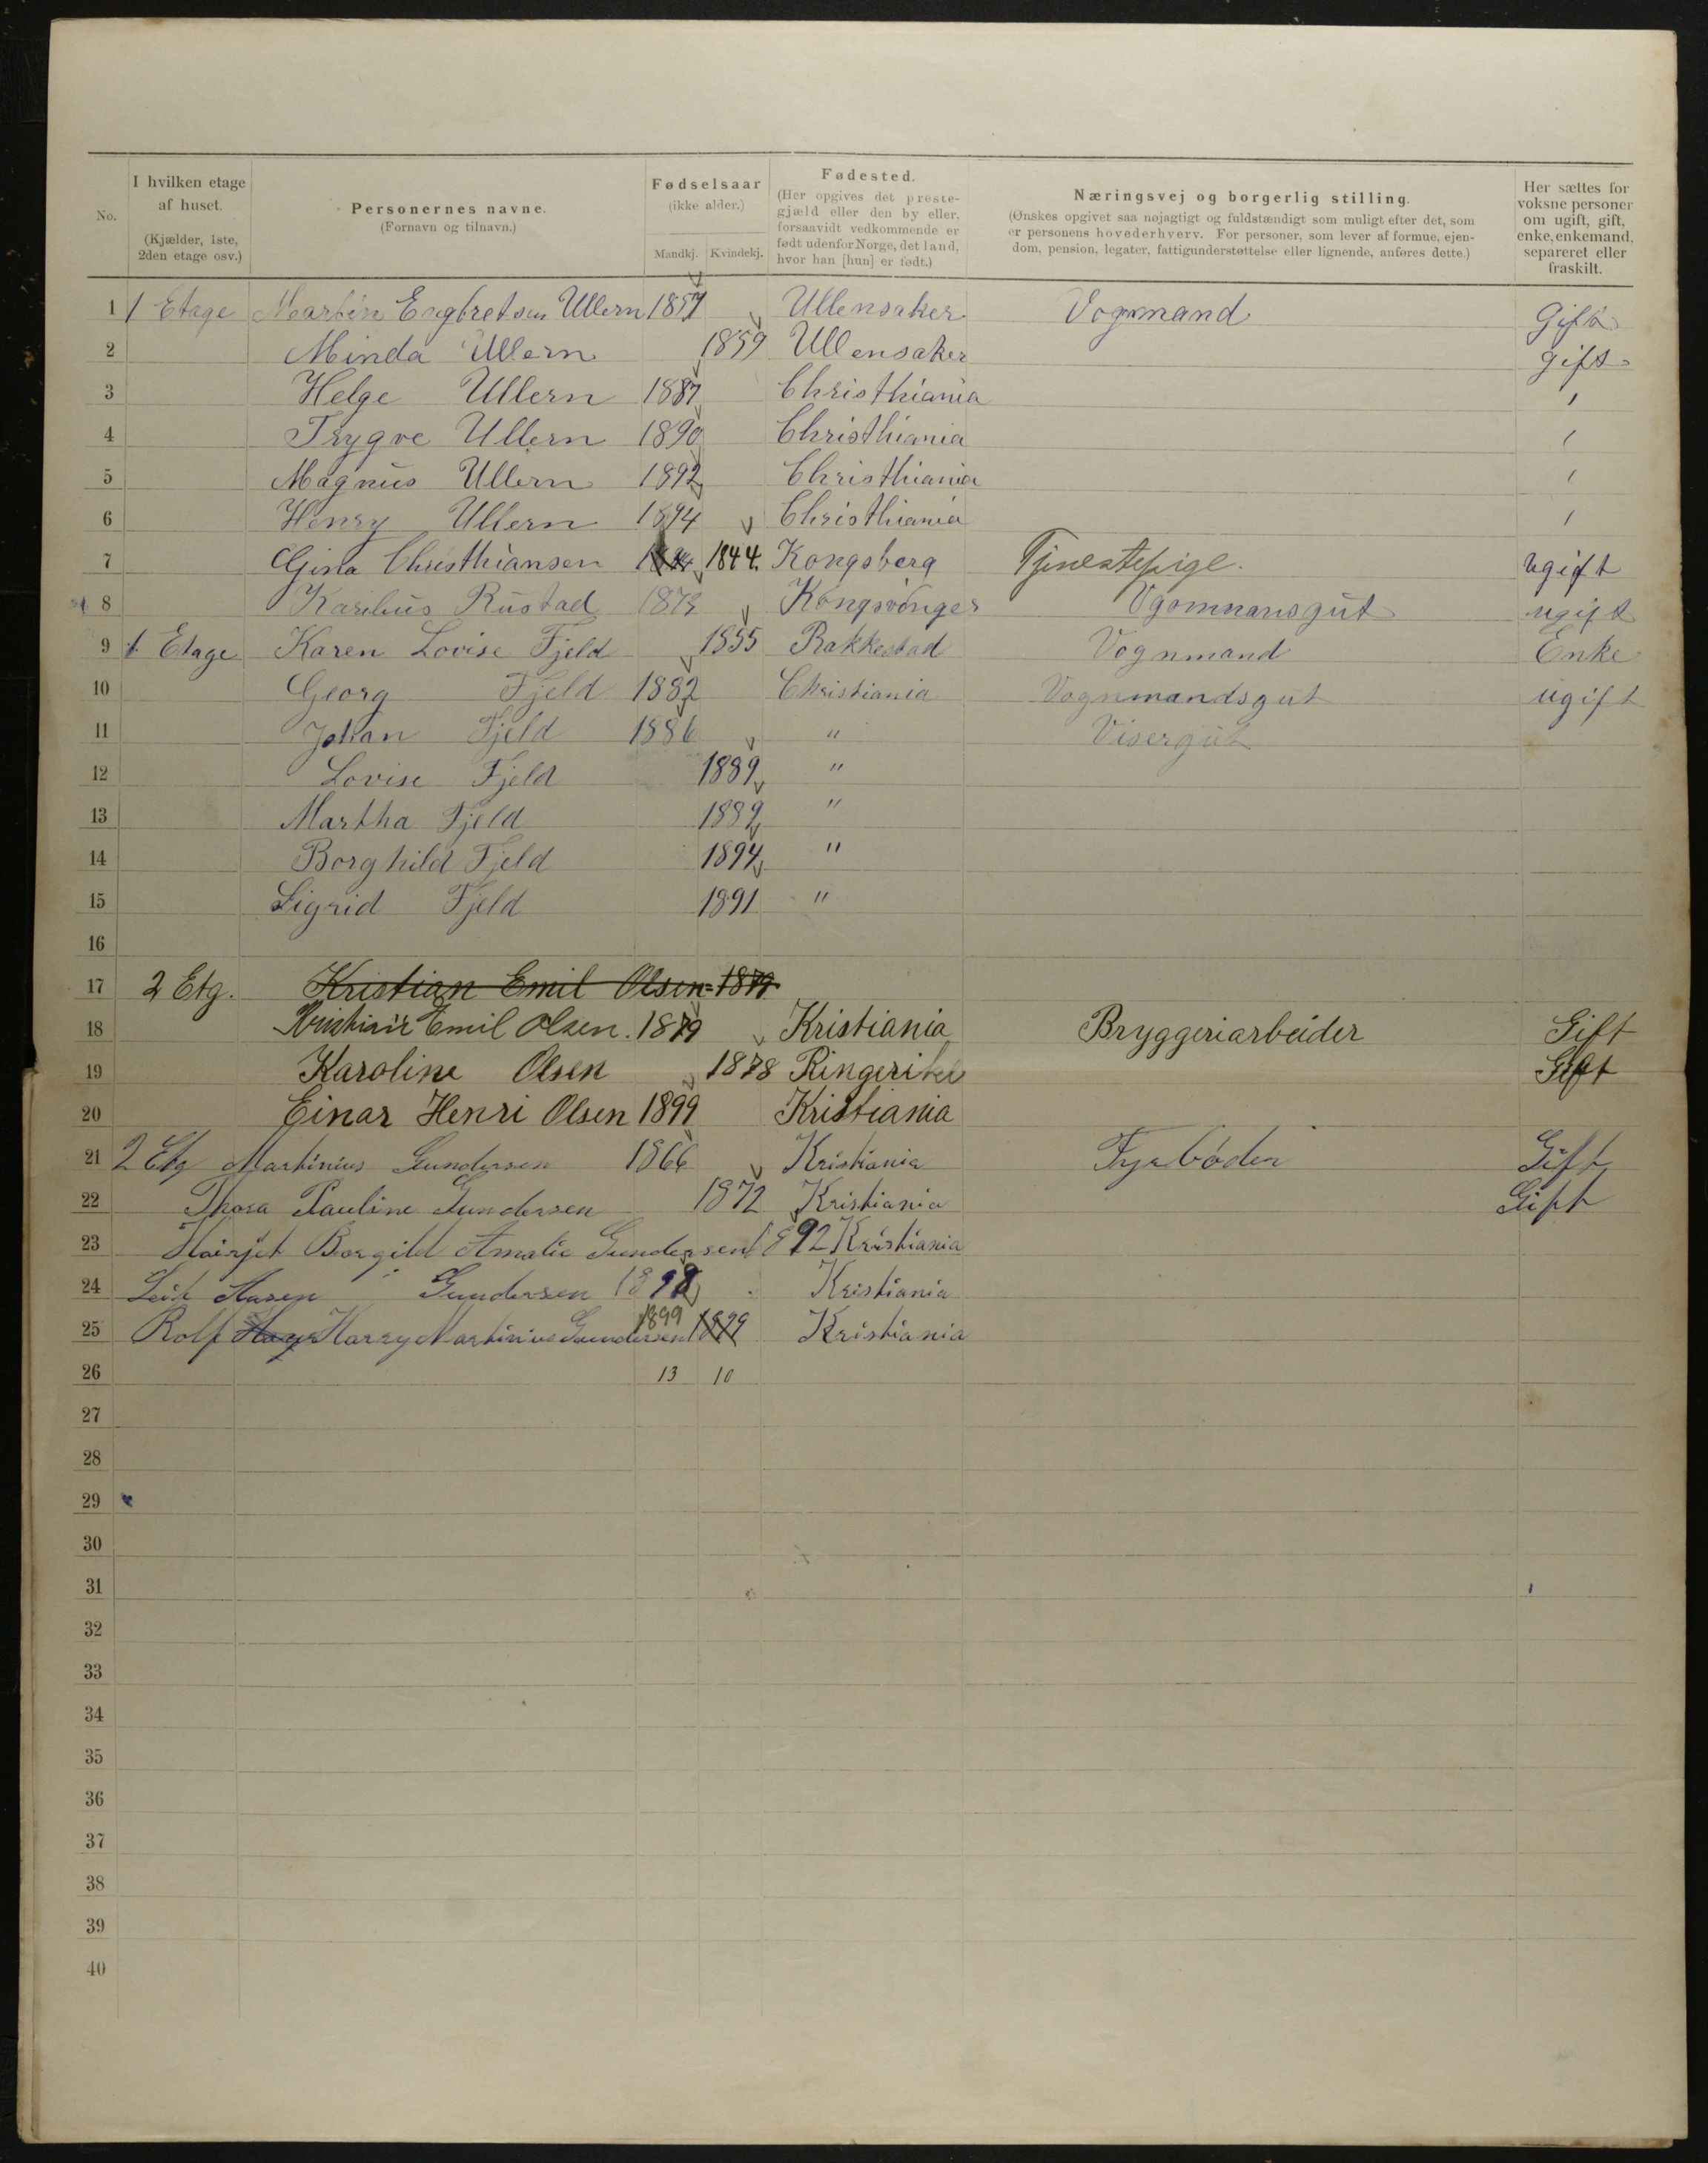 No.
I hvilken etage af huset. (Kjælder, 1ste, 2den etage osv.)
Personernes navne. (Fornavn og tilnavn.)
Fødselsaar (ikke alder.)
Mandkj. Kvindekj.
Fødested. (Her opgives det prestegjæld eller den by eller, forsaavidt vedkommende er født udenfor Norge, det land, hvor han [hun] er født.)
Næringsvej og borgerlig stilling. (Ønskes opgivet saa nøjagtigt og fuldstændigt som muligt efter det, som er personens hovederhverv. For personer, som lever af formue, ejendom, pension, legater, fattigunderstøttelse eller lignende, anføres dette.)
Her sættes for voksne personer om ugift, gift, enke, enkemand, separeret eller fraskilt.
1 1 Etage Martin Engbretsen Ullern 1857 Ullensaker Vognmand Gift
2 Minda Ullern 1859 Ullensaker gift
3 Helge Ullern 1887 Christhiania
4 Trygve Ullern 1890 Christhiania
5 Magnus Ullern 1892 Christhiania
6 Henry Ullern 1894 Christhiania
7 Gina Christhiansen 1844 Kongsberg Tjenestepige. ugift
8 Rustad Kongsvinger Vgomnansgut ugift
9 1 Etage Karen Lovise Fjeld 1855 Rakkestad Vognmand Enke
10 Georg Fjeld 1882 Christiania Vognmandsgut ugift
11 Johan Fjeld 1886 " Visergut
12 Lovise Fjeld 1889 "
13 Martha Fjeld 1889 "
14 Borghild Fjeld 1894 "
15 Sigrid Fjeld 1891 "
16
17 2 Etg. Kristian Emil Olsen 1879
18 Kristian Emil Olsen. 1879 Kristiania Bryggeriarbeider Gift
19 Karoline Olsen 1878 Ringerike Gift
20 Einar Henri Olsen 1899 Kristiania
21 2 Etg Martinius Gundersen 1866 Kristiania Fyrbøder Gift
22 Thora Pauline Gundersen 1872 Kristiania Gift
23 Borgild Amalie Gundersen 1892 Kristiania
24 Gundersen 1898 Kristiania
25 Rolf Harry Martinius Gundersen 1899 1899 Kristiania
26 13 10
27
28
29
30
31
32
33
34
35
36
37
38
39
40